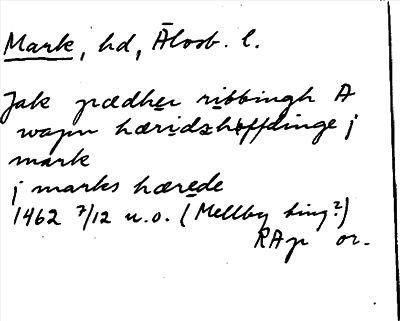 Mark, hd, Älvsb. l.
Jak pædher ribbingh A
wapn hæridzhöffdinge j
mark
j marks hærede
1462 7/12 u.o. (Mellby ting?)
RAp or.